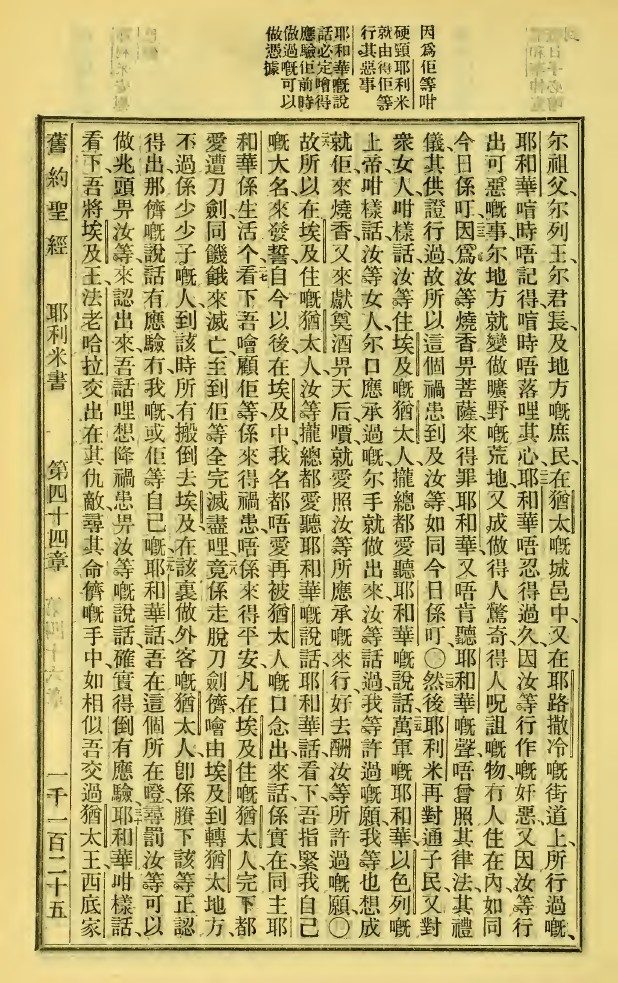 因爲佢等咁
硬頸耶利米
就由得佢等
行其惡事
耶和華嘅說
話必定噲得
應驗佢前時
做過嘅可以
做憑據
尔祖父、尔列王、尔君長、及地方嘅庶民、在猶太嘅城邑中、又在耶路撒冷嘅街道上、所行過嘅、
耶和華喑時唔記得、喑時唔落哩其心、耶和華唔忍得過久、因汝等行作嘅奸惡、又因汝等行
出可惡嘅事、尔地方就變做曠野嘅荒地、又成做得人驚奇、得人呪詛嘅物、冇人住在內、如同
今日係叮、因爲汝等燒香畀菩薩、來得罪耶和華、又唔肯聽耶和華嘅聲、唔曾照其律法、其禮
儀、其供證行過、故所以這個禍患到及汝等、如同今日係叮、〇然後耶利米再對通子民、又對
衆女人咁樣話、汝等住埃及嘅猶太人、攏總都愛聽耶和華嘅說話、萬軍嘅耶和華、以色列嘅
上帝咁樣話、汝等女人、尔口應承過嘅、尔手就做出來、汝等話過、我等許過嘅願、我等也想成
就佢、來燒香又來獻奠酒畀天后、嘳就愛照汝等所應承嘅來行、好去酬汝等所許過嘅願、〇
故所以在埃及住嘅猶太人、汝等攏總都愛聽耶和華嘅說話、耶和華話、看下吾指緊我自己
嘅大名來發誓、自今以後在埃及中、我名都唔愛再被猶太人嘅口念出來、話係實在同主耶
和華係生活个、看下吾噲顧佢等、係來得禍患、唔係來得平安、凡在埃及住嘅猶太人、完下都
愛遭刀劍同饑餓來滅亡、至到佢等全完滅盡哩、竟係走脫刀劍儕、噲由埃及到轉猶太地方、
不過係少少子嘅人、到該時所有搬倒去埃及、在該裏做外客嘅猶太人、卽係賸下該等、正認
得出那儕嘅說話有應驗、冇我嘅或佢等自己嘅、耶和華話、吾在這個所在噔尋罰汝等、可以
做兆頭畀汝等來認出來、吾話哩想降禍患畀汝等嘅說話、確實得倒有應驗、耶和華咁樣話、
看下吾將埃及王法老哈拉交出在其仇敵、尋其命儕嘅手中、如相似吾交過猶太王西底家
舊約聖經 耶利米書 第四十四章 一千一百二十五